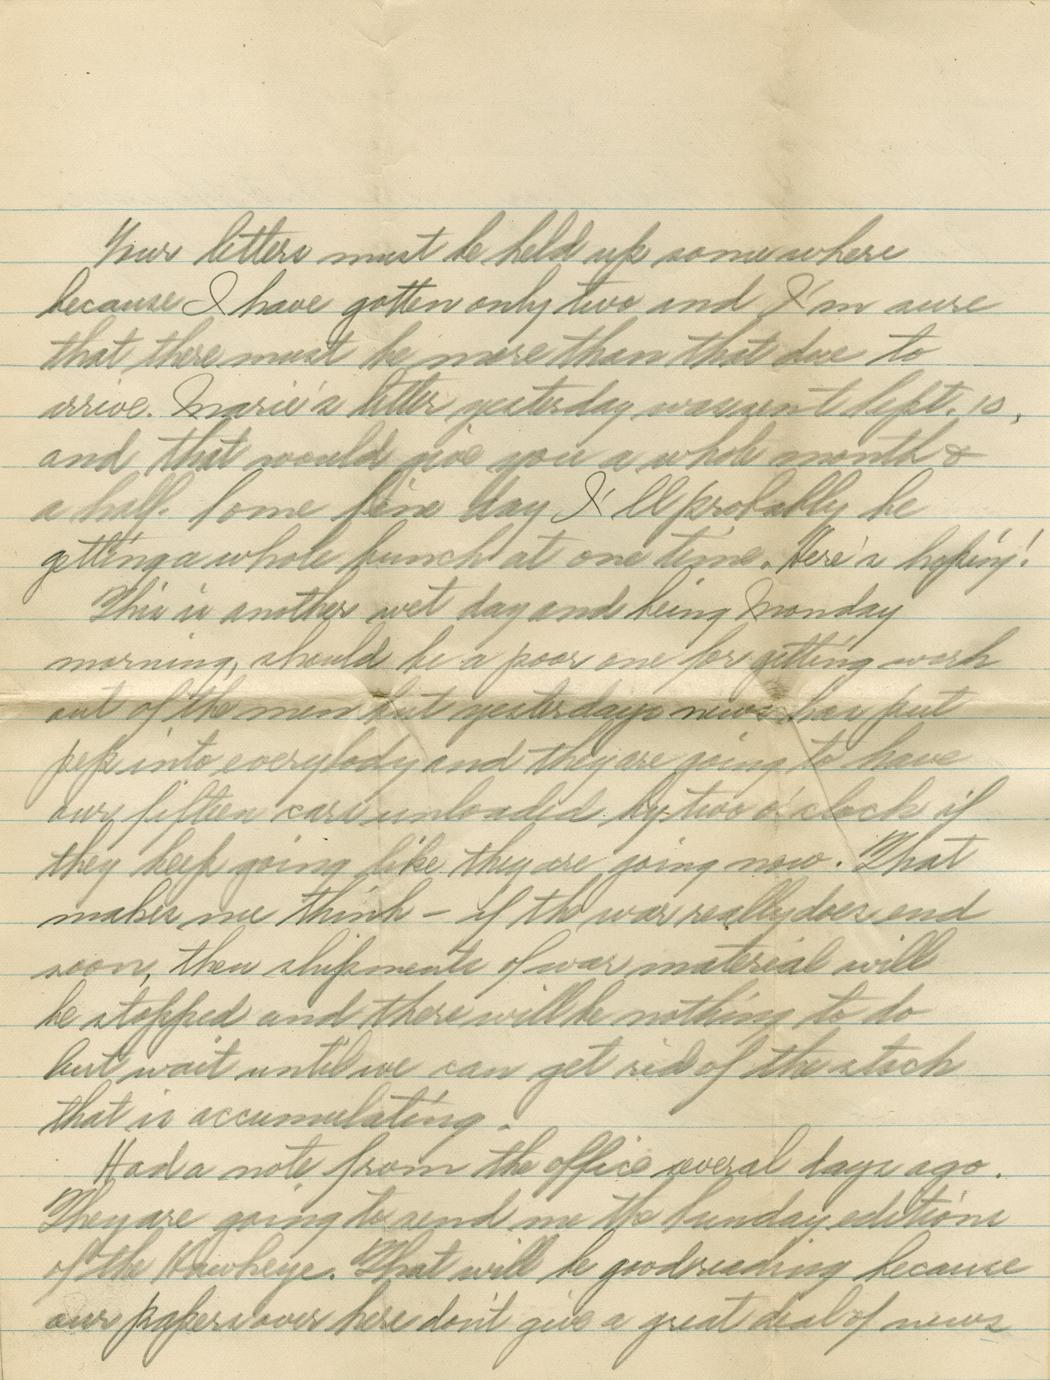 Your letters must be held up some where
because I have gotten only two and I'm sure
that there must be more than that due to
arrive. Marie's letter yesterday was sent Sept. 10,
and that would give you a whole month &
a half. Some fine day I'll probably be
getting a whole bunch at one time. Here's hopin'!
This is another wet day and being Monday
morning, should be a poor one for getting work
out of the men but yesterdays news has put
pep into everybody and they are going to have
our fifteen cars unloaded by two o'clock if
they keep going like they are going now. That
makes me think – if the war really does end
soon, then shipments of war material will
be stopped and there will be nothing to do
but wait until we can get rid of the stock
that is accumulating.
Had a note from the office several days ago.
They are going to send me the Sunday editions
of the Hawkeye. That will be good reading because
our papers over here don't give a great deal of news